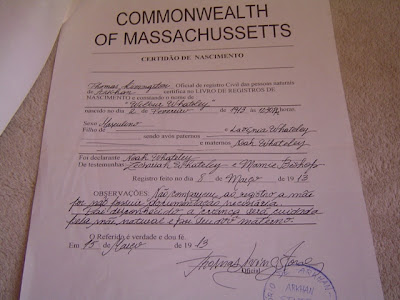 COMMONWEALTH
OF MASSACHUSSETTS
CERTIDÃO DE NASCIMENTO
Thomas Livingston Oficial de registro Civil das pessoas naturais
de Arkhan certifica no LIVRO DE REGISTROS DE
NASCIMENTO e constando o nome de
"Wilbur Whateley"
nascido no dia 2 de Fevereiro de 1913 às horas
Sexo Masculino
Filho de e Lavinia Whateley
sendo avós paternos
e maternos Noah Whateley
Foi declarante Noah Whateley
De testemunhas Zechariah Whateley e Mamie Bishop
Registro feito no dia 8 de Março de 1913
OBSERVAÇÕES: Não compareceu ao registro a mãe
por não possuir documentação necessária.
Pai desconhecido a criança será cuidada
pela mãe natural e por seu avô materno
O Referido é verdade e dou fé.
Em 15 de Março de 1913
ARKHAN